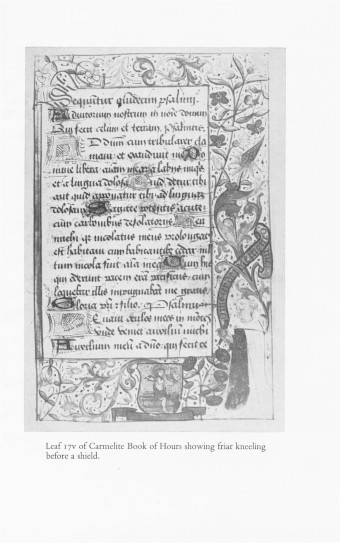 Sequūtur quīdecim psalmi.
Adiutorium nostrum in noīe domini
Qui fecit celum et terram. psalmus.
Ad Dn̄m cum tribularer cla
maui et exaudiuit me Do
mine libera aīam meam a labiis
et a lingua dolosa Quid detur tibi
aut quid apponatur tibi ad linguā
dolosam Sagitte potentis acute:
cum carbonibus desolatoriis Heu
michi incolatus meus prolongat
est habitaui cum habitantibus cedar mul
tum incola fuit aīa mea Cum his
qui oderunt pacem eram pacificus cum
loquebar illis impugnabāt me gratis
Gloria pr̄i filio. Psalmus
Leuaui oculos meos in mōtes
vnde veniet auxilium michi
Auxilium meū a dn̄o qui fecit ce
Leaf 17v of Carmelite Book of Hours showing friar kneeling
before a shield.